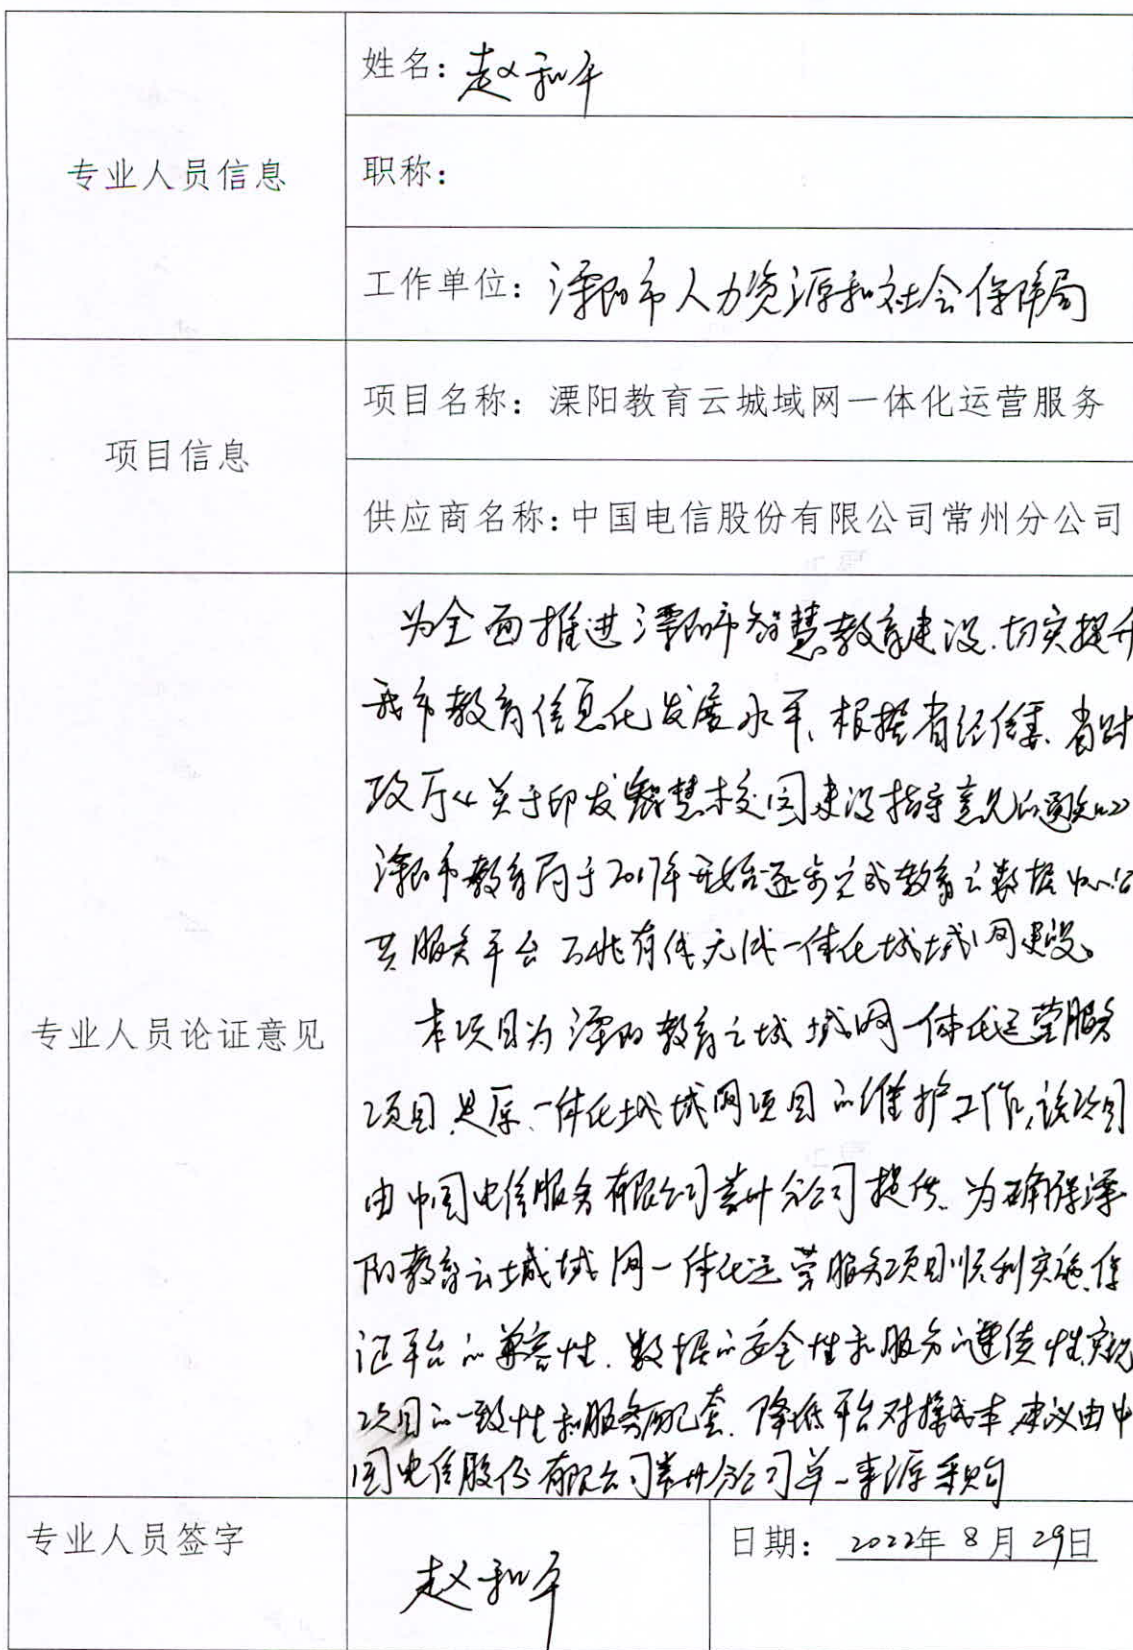 专业人员信息
姓名：赵和平
职称：
工作单位：溧阳市人力资源和社会保障局
项目信息
项目名称：溧阳教育云城域网一体化运营服务
供应商名称：中国电信股份有限公司常州分公司
专业人员论证意见
为全面推进溧阳市智慧教育建设.切实提升
我市教育信息化发展水平、根据省经信委、省财
政厅《关于印发智慧校园建设指导意见的通知》
溧阳市教育局于2017年开始逐步完成教育云数据中心公
共服务平台 万兆有线无线一体化城域网建设。
本项目为溧阳教育云城域网一体化运营服务
项目,是原一体化城域网项目的维护工作,该项目
由中国电信服务有限公司常州分公司提供.为确保溧
阳教育云城域网一体化运营服务项目顺利实施.保
证平台的兼容性.数据的安全性和服务的连续性,实现
项目的一致性和服务配套.降低平台对接成本,建议由中
国电信股份有限公司常州分公司单一来源采购
专业人员签字
赵和平
日期：2022年8月29日